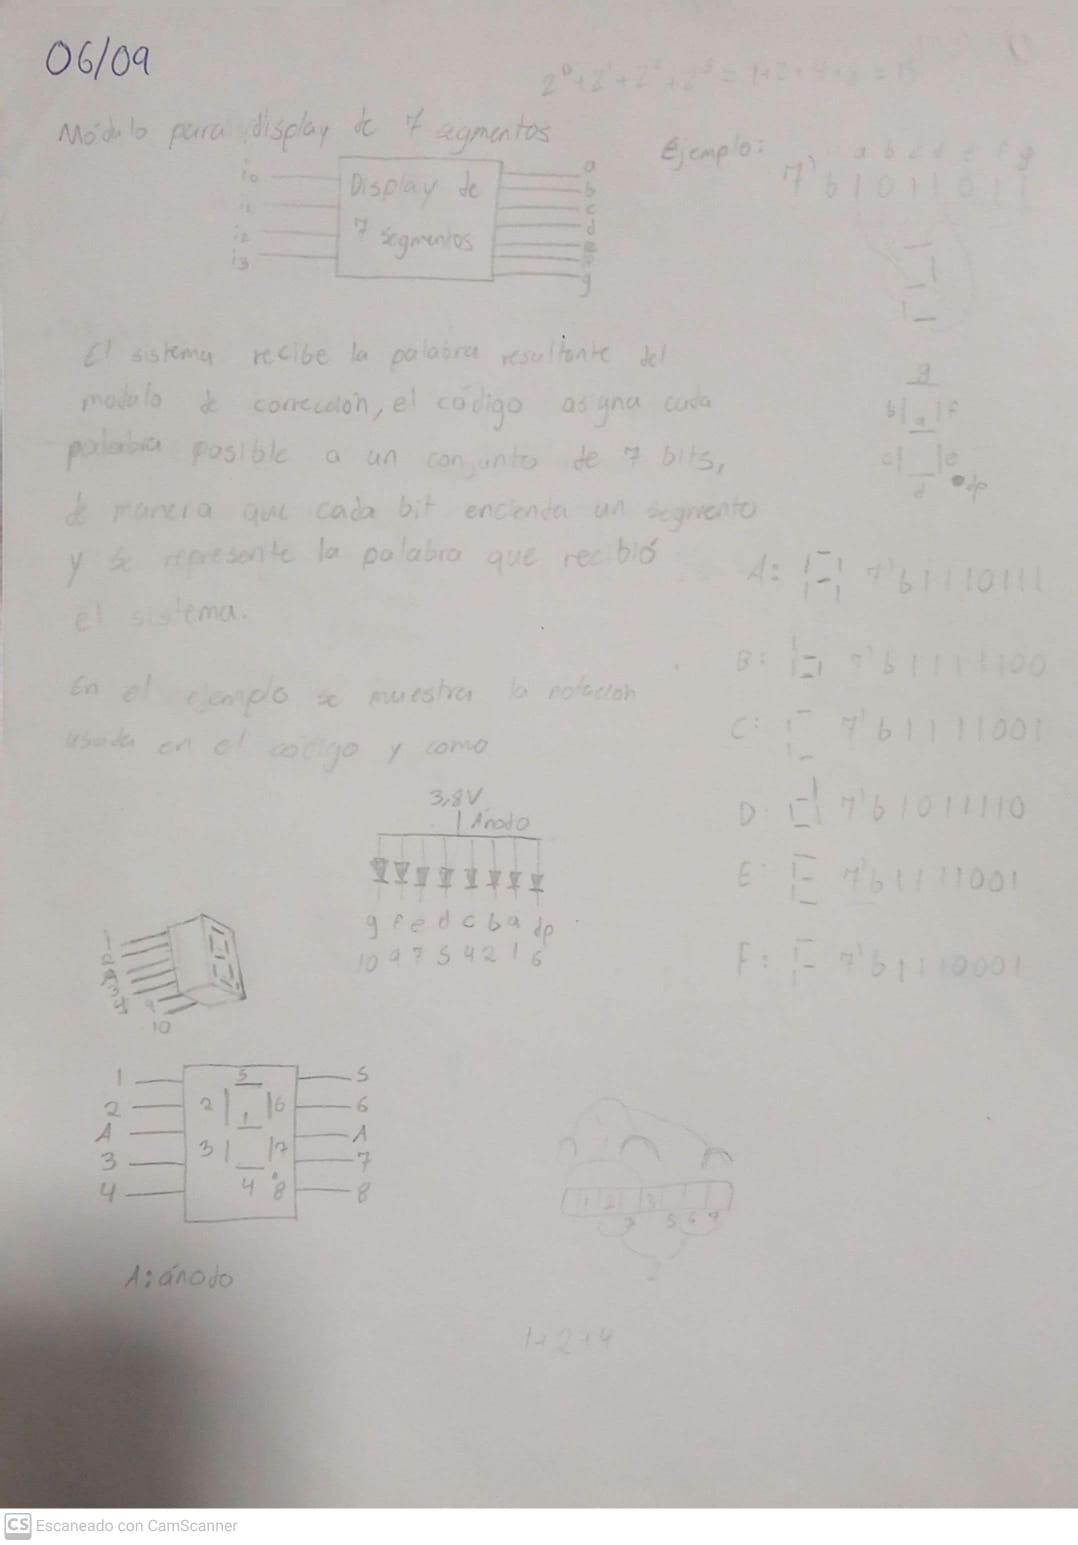 06/09
2⁰+2¹+2²+2³ = 1+2+4+8 = 15
Módulo para display de 7 segmentos
Ejemplo:
a b c d e f g
7'b1011011
i0
i1
i2
i3
Display de
7 segmentos
a
b
c
d
e
f
g
El sistema recibe la palabra resultante del
modulo de corrección, el código asigna cada
palabra posible a un conjunto de 7 bits,
de manera que cada bit encienda un segmento
y se represente la palabra que recibió
el sistema.
En el ejemplo se muestra la notación
usada en el código y como
g
b a f
c e
d dp
A: 7'b1110111
B: 7'b1111100
C: 7'b1111001
D: 7'b1011110
E: 7'b1111001
F: 7'b1110001
3,8V
Ánodo
g f e d c b a dp
10 9 7 5 4 2 1 6
9
10
1
2
A
3
4
5
2 6
1
3 7
4 8
5
6
A
7
8
A: ánodo
1 2 3
3 5 6 7
1+2+4
CS Escaneado con CamScanner